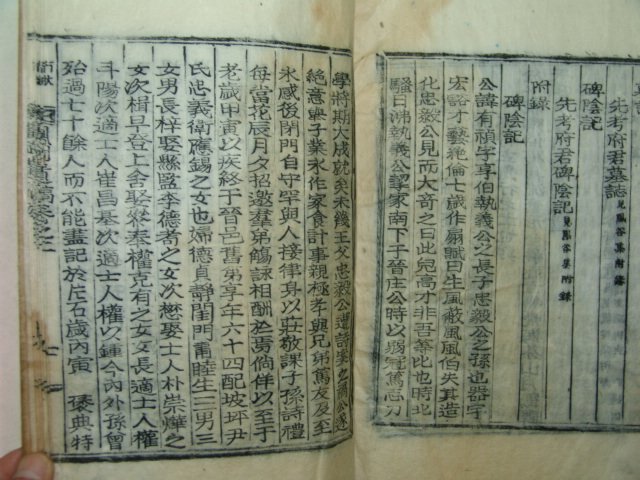 先考府君墓誌 見鳳谷集附錄
碑陰記
先考府君碑陰記 見鳳谷集附錄
附錄
碑陰記
公諱有禎字享伯執義公之長子忠毅公之孫也器宇
宏豁才藝絶倫七歲作扇賦曰生風蔽風風伯失其造
化忠毅公見而大奇之曰此兒高才非吾等比也時北
騷日沸執義公挈家南下于晉庄公時以弱冠篤志刀
學將期大成就矣未幾王父忠毅公遭
絶意擧子業永作家食計事親極孝與兄弟篤友及至
永感後閉門自守罕與人接律身以莊敬課子孫詩禮
每當花辰月夕招邀羣弟觴詠相酬於焉倘佯以至于
老歲甲寅以疾終于晉邑舊第享年六十四配坡坪尹
氏忠義衛應錫之女也婦德貞靜閨門莆睦生二男三
女男長梓娶縣監李德耆之女次楙娶士人朴崇燁之
女次楫早登上舍娶叅奉權克有之女女長適士人權
斗陽次適士人崔昌基次適士人權以鍾今內外孫曾
殆過七十餘人而不能盡記於片石歲丙寅